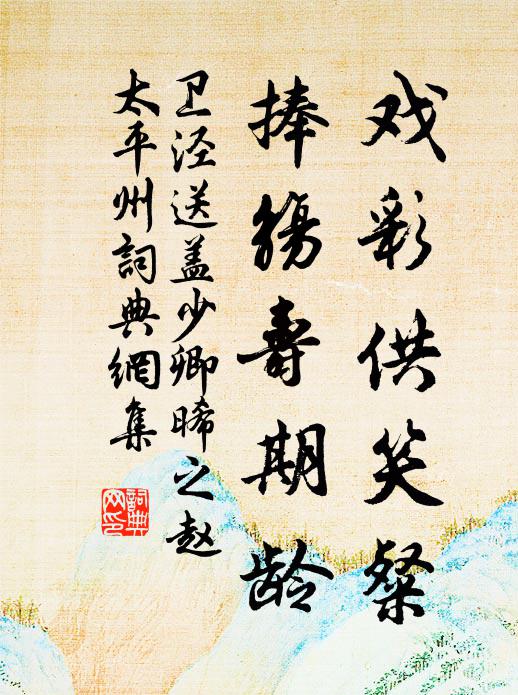 戏彩供笑粲
捧觞寿期龄
卫泾送盖少卿晞之赵
太平州詞典網集
詞典
网印